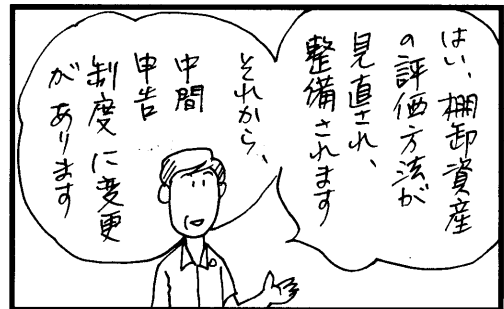 はい、棚卸資産
の評価方法が
見直され、
整備されます
それから、
中間
申告
制度に変更
があります